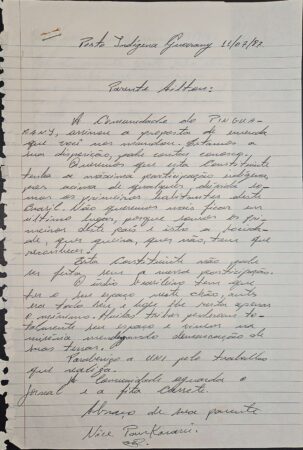 Posto Indígena Guarany 11/07/87.
Parente Ailton:
A Comunidade do PINGUA-
RANY, assinou a proposta de emenda
que você nos mandou. Estamos a
sua disposição, pode contar conosco.
Queremos que esta Constituinte
tenha a máxima participação indígena,
pois acima de qualquer dúvida so-
mos os primeiros habitantes deste
Brasil. Não queremos mais ficar em
último lugar, porque somos os pri-
meiros deste país e isto a socieda-
de, quer queira, quer não, tem que
reconhecer.
Esta Constituinte não pode
ser feita, sem a nossa participação.
O índio brasileiro tem que
ter o seu espaço, seu chão,
era todo seu e hoje lhe resta apenas
o mínimo. Muitas tribos perderam to-
talmente seu espaço e vivem na
miséria demarcação de
suas terras.
Parabenizo a UNI pelo trabalho
que realiza.
A Comunidade aguarda o
Jornal e a fita cassete.
Abraço de sua parente